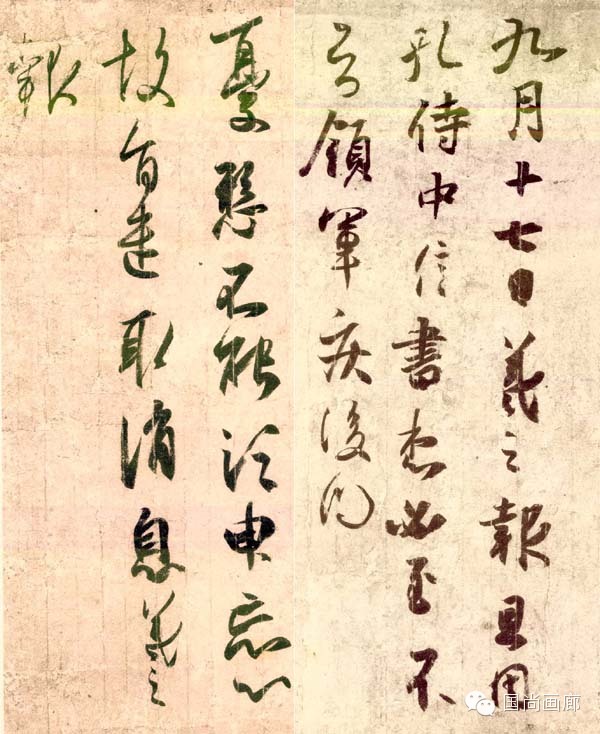 九月十七日羲之報且因
孔侍中信書想必至不
知領軍疾後問
憂懸不能須臾忘心
故旨遣取消息羲之
報
国尚画廊